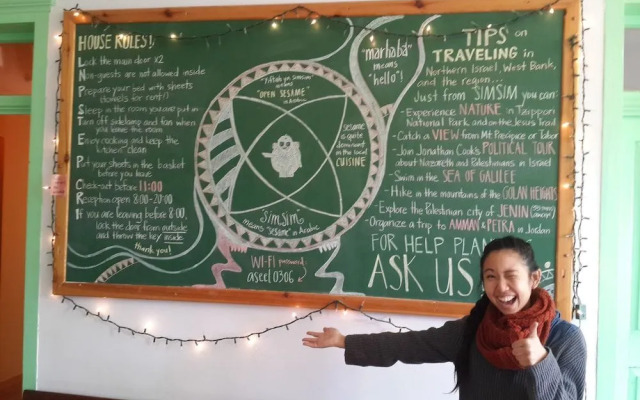 HOUSE RULES!
Lock the main door x2
Non-guests are not allowed inside
Prepare your bed with sheets
Sleep in the room you are put in
Turn off sidelamp and fan when
you leave the room
Enjoy cooking and keep the
kitchen clean
Put your sheets in the basket
before you leave
Check-out before 11:00
Reception open 8:00-20:00
If you are leaving before 8:00,
lock the door from outside
and throw the key inside
thank you!
"OPEN SESAME"
in Arabic
sesame
is quite
dominant
in the local
CUISINE
SimSim
means "SESAME" in Arabic
WI-FI password
aseel0306
"marhaba"
means
"hello"!
TIPS on
TRAVELING in
Northern Israel, West Bank,
and the region...
Just from SIMSIM you can:
- Experience NATURE in Tzippori
National Park and on the Jesus Trail
- Catch a VIEW from Mt Precipice or Tabor
- Join Jonathan Cook's POLITICAL TOUR
about Nazareth and Palestinians in Israel
- Swim in the SEA OF GALILEE
- Hike in the mountains of the GOLAN HEIGHTS
- Explore the Palestinian city of JENIN
- Organize a trip to AMMAN & PETRA in Jordan
FOR HELP
ASK US